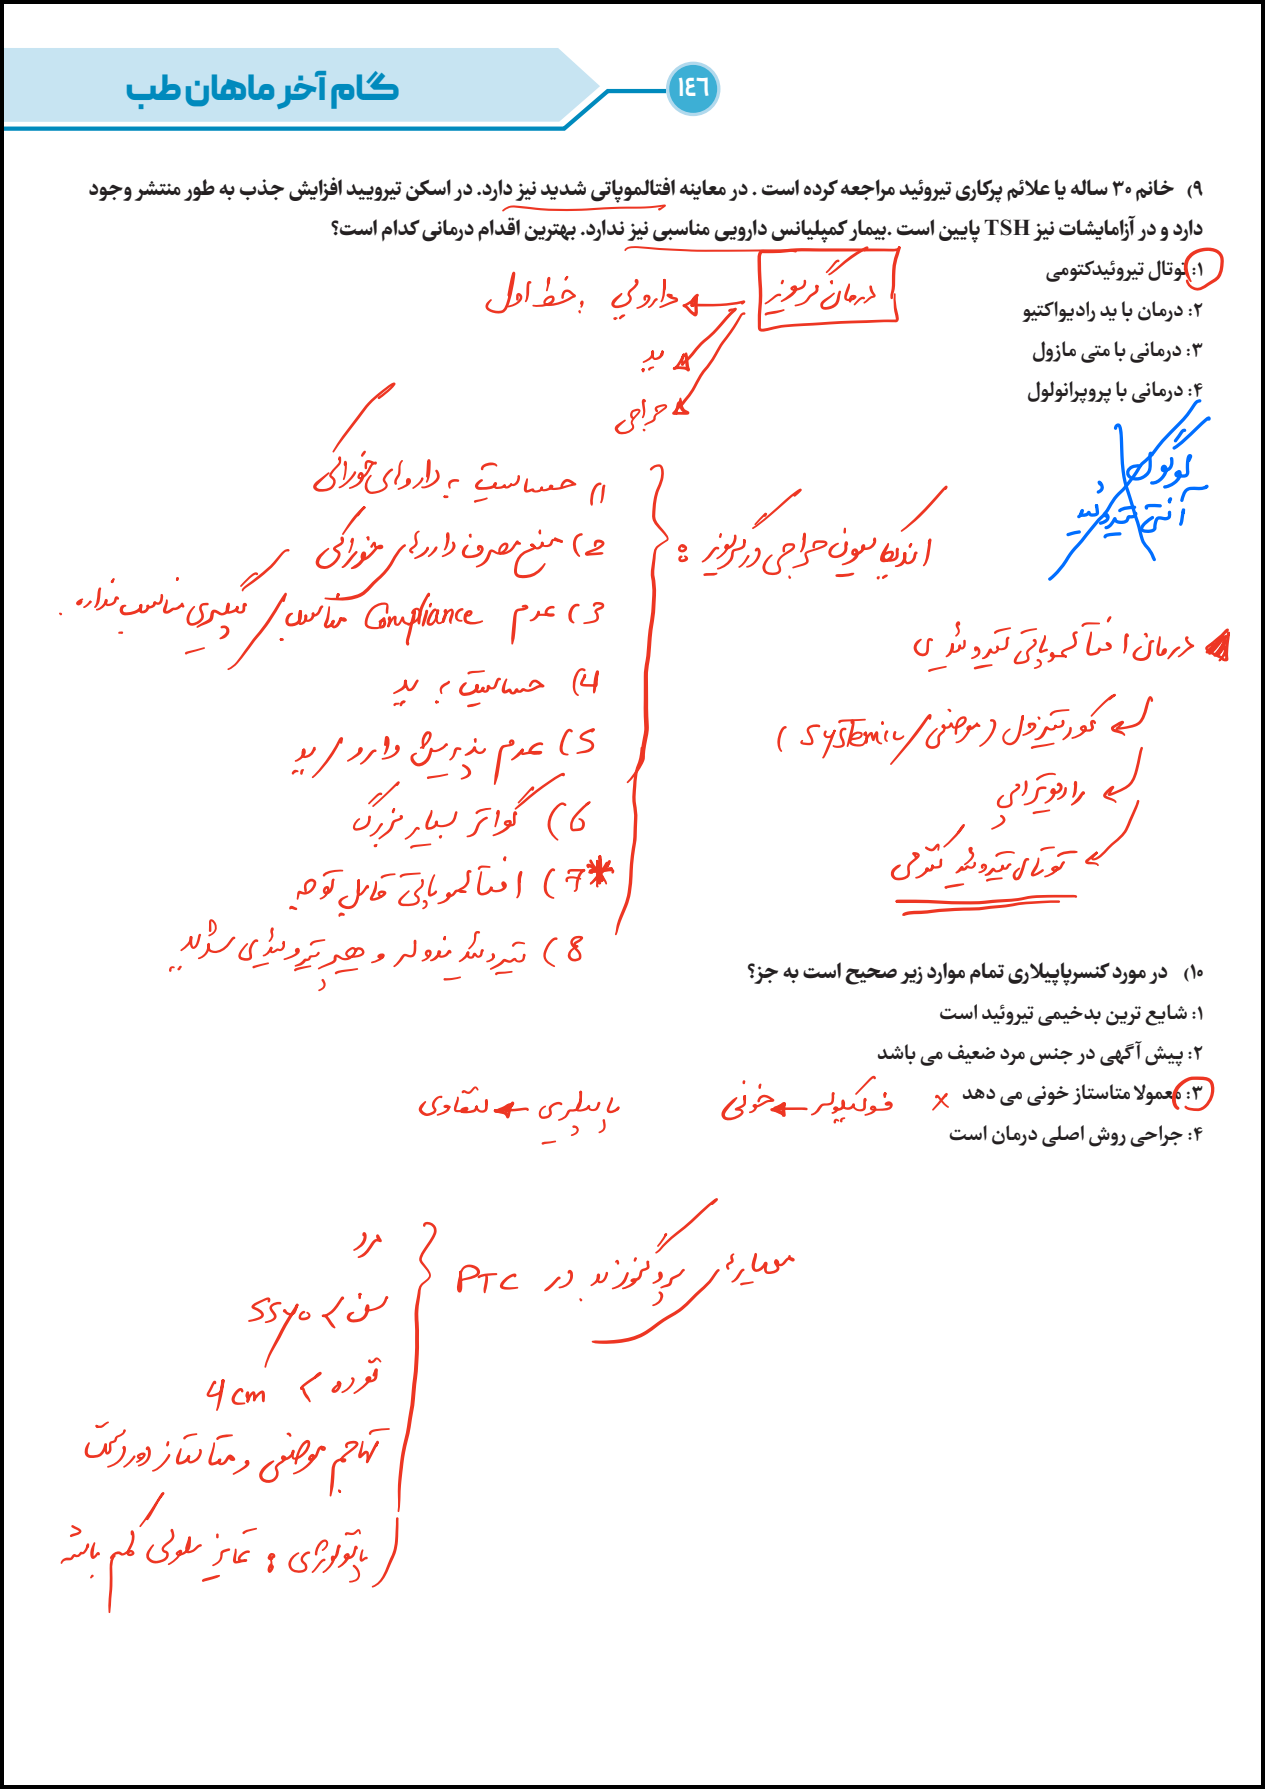 گام آخر ماهان طب
١٤٦
۹) خانم ۳۰ ساله یا علائم پرکاری تیروئید مراجعه کرده است . در معاینه افتالموپاتی شدید نیز دارد. در اسکن تیرویید افزایش جذب به طور منتشر وجود
دارد و در آزمایشات نیز TSH پایین است .بیمار کمپلیانس دارویی مناسبی نیز ندارد. بهترین اقدام درمانی کدام است؟
۱: توتال تیروئیدکتومی
۲: درمان با ید رادیواکتیو
۳: درمانی با متی مازول
۴: درمانی با پروپرانولول
درمان گریوز
دارویی : خط اول
ید
جراحی
لوگول
آنتی تیروئید
اندیکاسیون جراحی در گریوز :
1) حساسیت به داروهای خوراکی
2) منع مصرف داروهای خوراکی
3) عدم Compliance مناسب / پیگیری مناسب نداره.
4) حساسیت به ید
5) عدم پذیرش دارو / ید
6) گواتر بسیار بزرگ
7) افتالموپاتی قابل توجه
8) تیروئید ندولر و هیپرتیروئیدی شدید
درمان افتالموپاتی تیروئیدی
کورتیزول (موضعی / Systemic)
رادیوتراپی
توتال تیروئیدکتومی
۱۰) در مورد کنسرپاپیلاری تمام موارد زیر صحیح است به جز؟
۱: شایع ترین بدخیمی تیروئید است
۲: پیش آگهی در جنس مرد ضعیف می باشد
۳: معمولا متاستاز خونی می دهد
× فولیکولر ← خونی
پاپیلری ← لنفاوی
۴: جراحی روش اصلی درمان است
معیارهای پروگنوز بد در PTC
مرد
سن > 55y0
توده > 4 cm
تهاجم موضعی و متاستاز دوردست
پاتولوژی : تمایز سلولی کم باشه